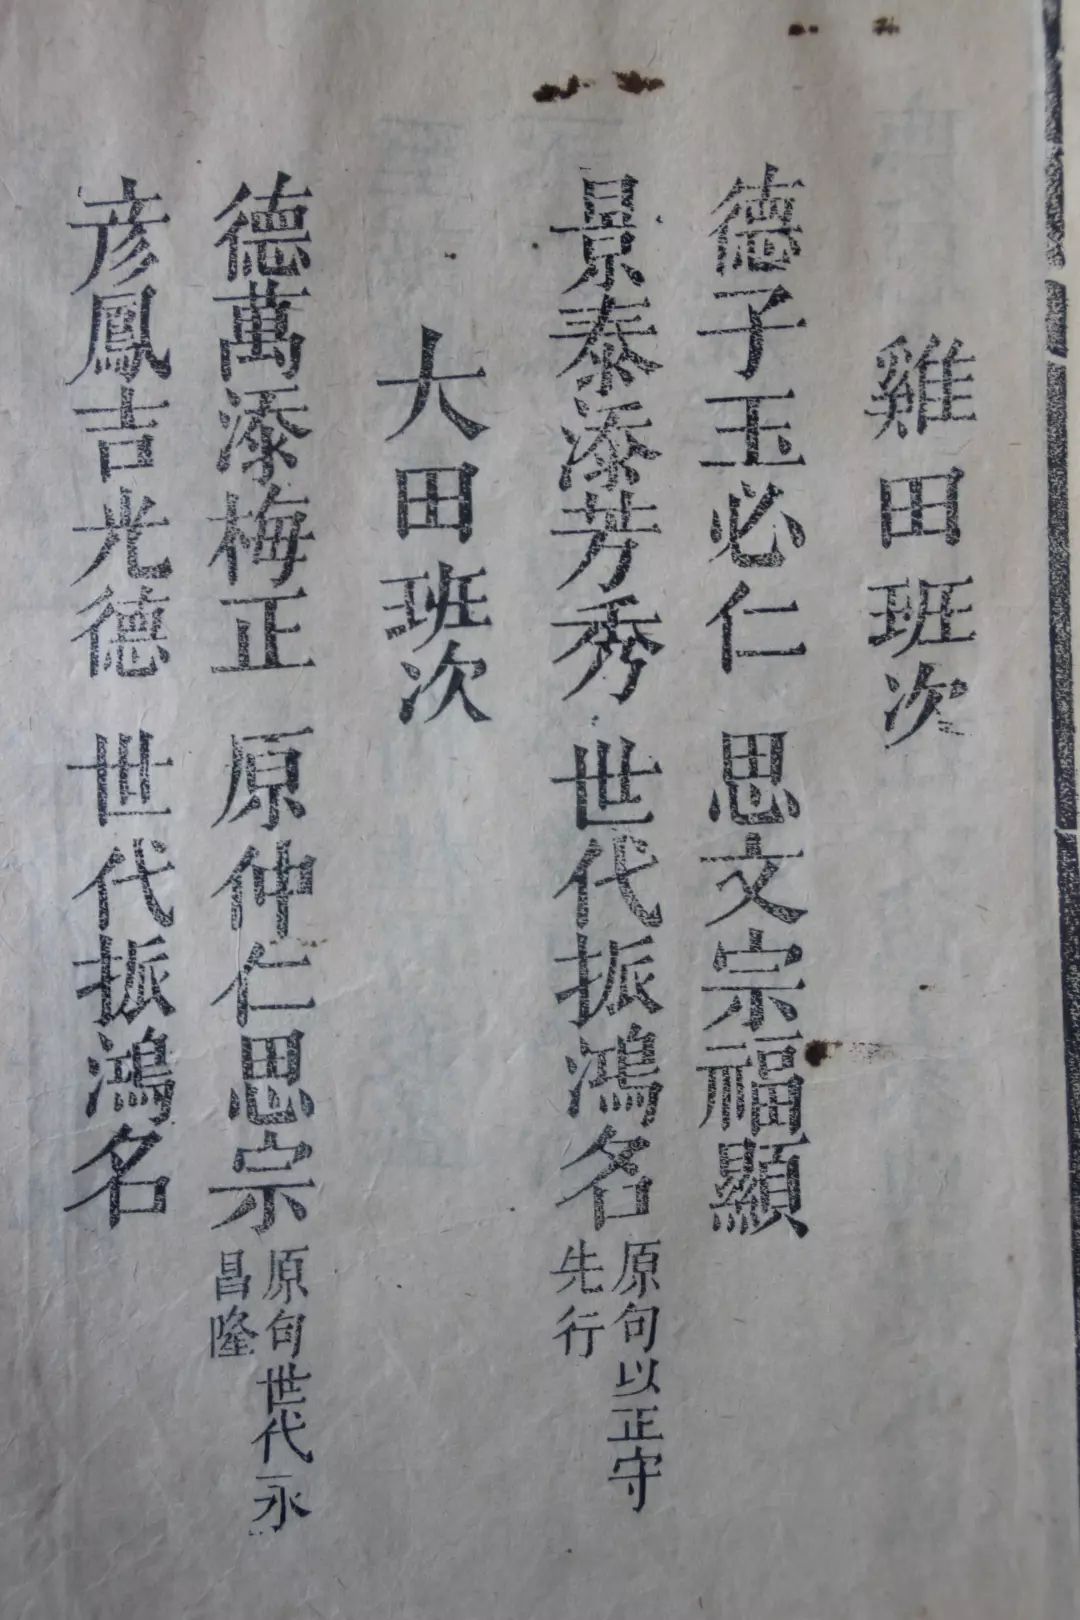 雞田班次
德子玉必仁 思文宗福顯
景泰添芳秀 世代振鴻名 原句以正守先行
大田班次
德萬添梅正 原仲仁思宗 原句世代永昌隆
彥鳳吉光德 世代振鴻名